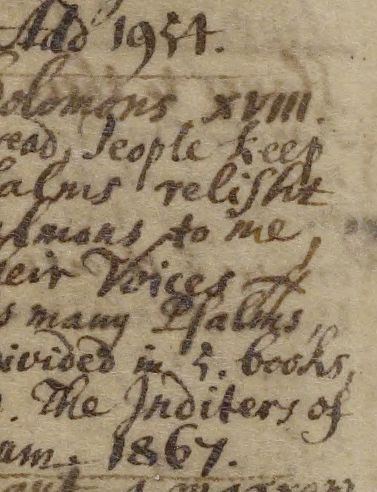 Add 1954.
olomons xviii.
ead, People keep
salms relisht
lmons to me,
eir Voices
s many Psalms,
ivided in 5. books,
The Inditers of
am. 1867.